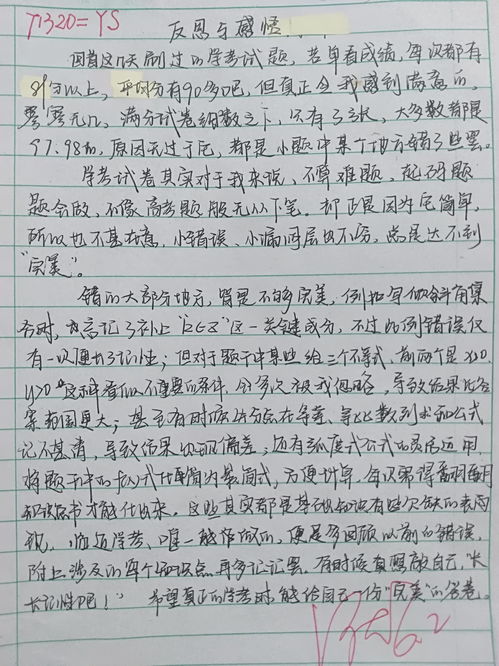 反思与感悟
回首这几天刷过的学考试题，若单看成绩，每次都有
91分以上，平均分有90多吧，但真正令我感到满意的
寥寥无几，满分试卷细数之下，只有了3张，大多数都是
97.98的，原因无过于它，都是小题中某个地方错了些罢。
学考试卷其实对于我来说，不算难题，起码题
题会做，不像高考题般无从下笔。却正是因为它简单，
所以也不甚在意，小错误、小漏洞层出不穷，总是达不到
“完美”。
错的大部分地方，皆是不够完美，例如写
时，忘记了补上“k∈Z”这一关键成分，不过此例错误仅
有一次便长了记性；但对于题干中某些给三个不等式，前两个是x>0，
y>0这种看似不重要的条件，多次被我忽略，导致结果比答
案范围更大；甚至有时候失分点在等差、等比数列求和公式
记不甚清，导致结果出现偏差；还有弧度式公式的灵活运用，
将题干中的式化简为最简式，方便计算，每次需得翻
知识点书才能做出来。这些其实都是基础知识有些欠缺的表现
临近学考，唯一能作的，便是多回顾以前的错误，
附上涉及的每个知识点再多记记罢。有时候真想敲自己，“长
长记性吧！” 希望真正的学考时能给自己一份“完美”的答卷。